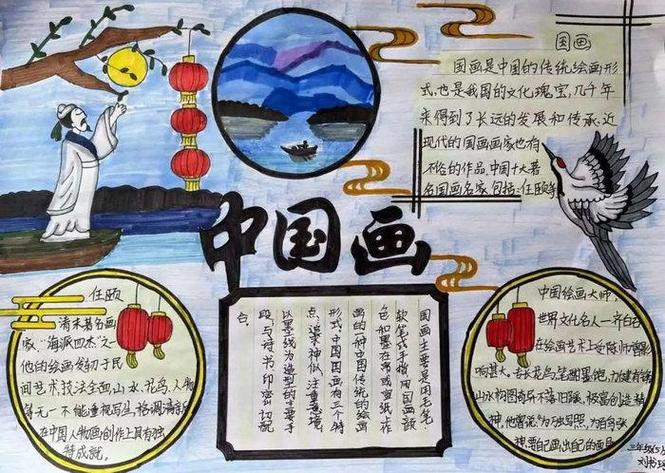 国画
国画是中国的传统绘画形
式,也是我国的文化瑰宝,几千年
来得到了长远的发展和传承,近
现代的国画画家也有
不俗的作品,中国十大著
名国画名家,包括:任颐
中国画
任颐
清末著名画
家、海派四杰之一
他的绘画发轫于民
间艺术,技法全面,山水、花鸟、人物
等无一不能重视写生,格调清新
在中国人物画创作上具有独
特成就。
国画主要是用毛笔
软笔或手指,用国画颜
色和墨在帛或宣纸上作
画的一种中国传统的绘画
形式,中国国画有三个特
点,追求神似,注重意境
以墨线为造型的主要手
段,与诗书印密切配
合。
中国绘画大师,
世界文化名人一齐白石
在绘画艺术上受陈师曾影
响甚大,
花鸟,笔酣墨饱,力健有锋
山水构图奇异不落旧蹊,极富创造精
神,他曾说"为万
想要自己画出自己的面目